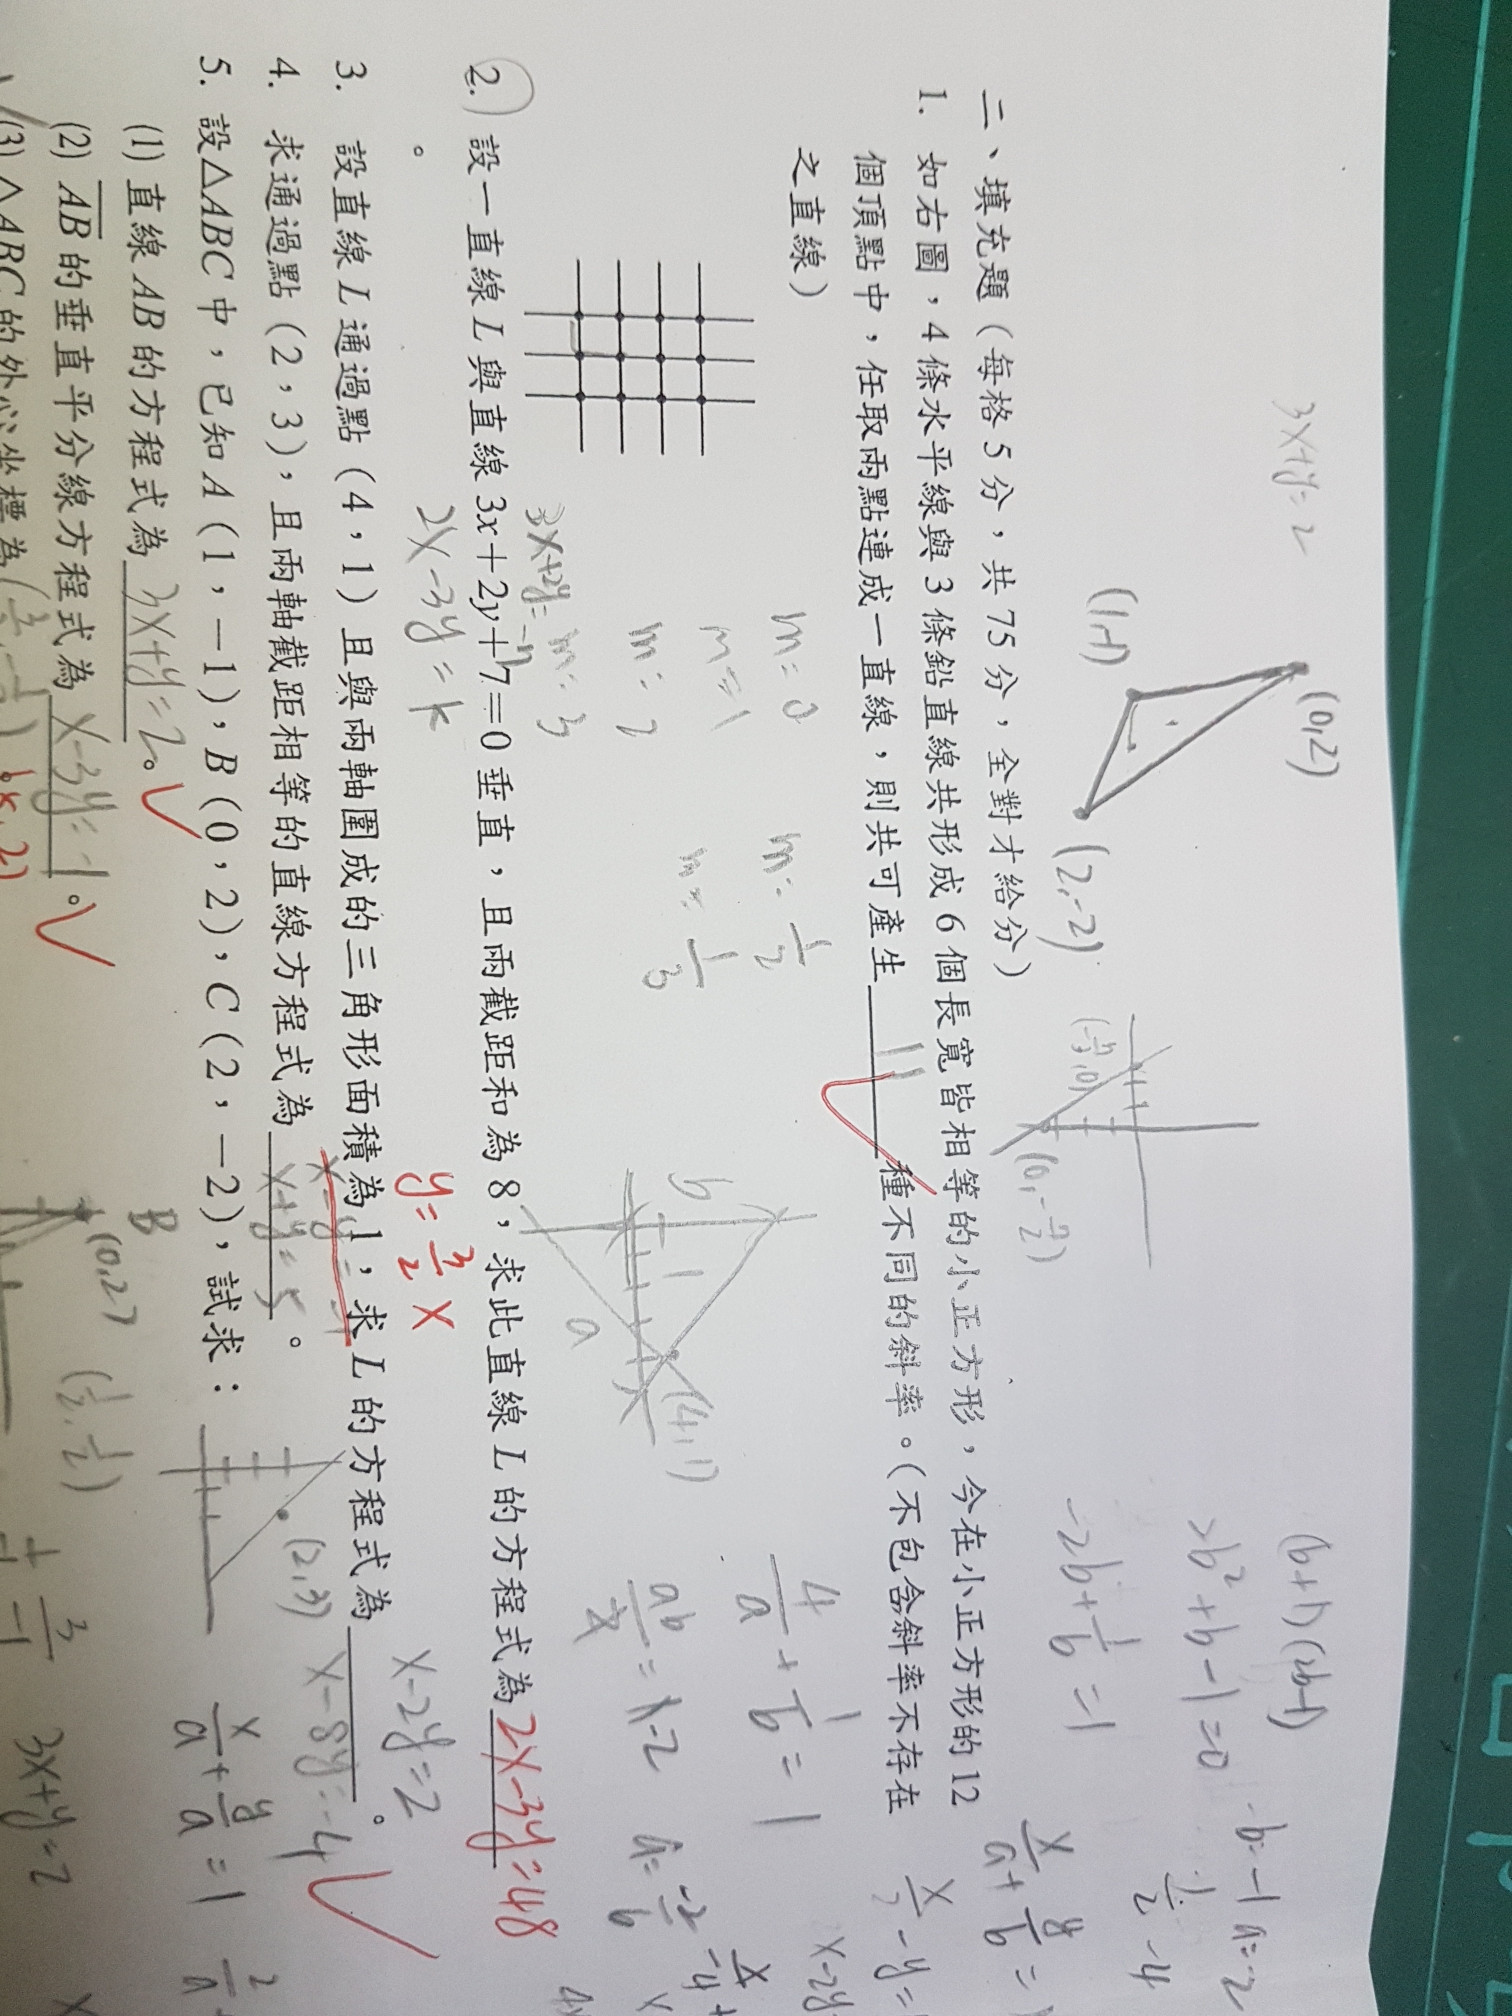 3x+y=2
(0,2)
(1,-1)
(2,-2)
(b+1)(2b-1)
2b²+b-1=0
-2b+1/b=1
二、填充題(每格5分,共75分,全對才給分)
1. 如右圖,4條水平線與3條鉛直線共形成6個長寬皆相等的小正方形,今在小正方形的12
個頂點中,任取兩點連成一直線,則共可產生 11 種不同的斜率。(不包含斜率不存在
之直線)
m=0
m=1
m=2
m=3
m=1/2
m=1/3
b
a
(4,1)
4/a+1/b=1
3x+2y=-7
2x-3y=k
2. 設一直線L與直線3x+2y+7=0垂直,且兩截距和為8,求此直線L的方程式為 2x-3y=48
。
y=3/2 x
x-2y=2
3. 設直線L通過點(4,1)且與兩軸圍成的三角形面積為1,求L的方程式為 x-8y=-4 。
4. 求通過點(2,3),且兩軸截距相等的直線方程式為 x+y=5 。
(2,3)
x/a+y/a=1
5. 設△ABC中,已知A(1,-1),B(0,2),C(2,-2),試求:
(1) 直線AB的方程式為 3x+y=2。
B
(0,2)
(1/2,1/2)
(2) AB的垂直平分線方程式為 x-3y=-1。
3x+y=2
(3) △ABC的外心坐標為